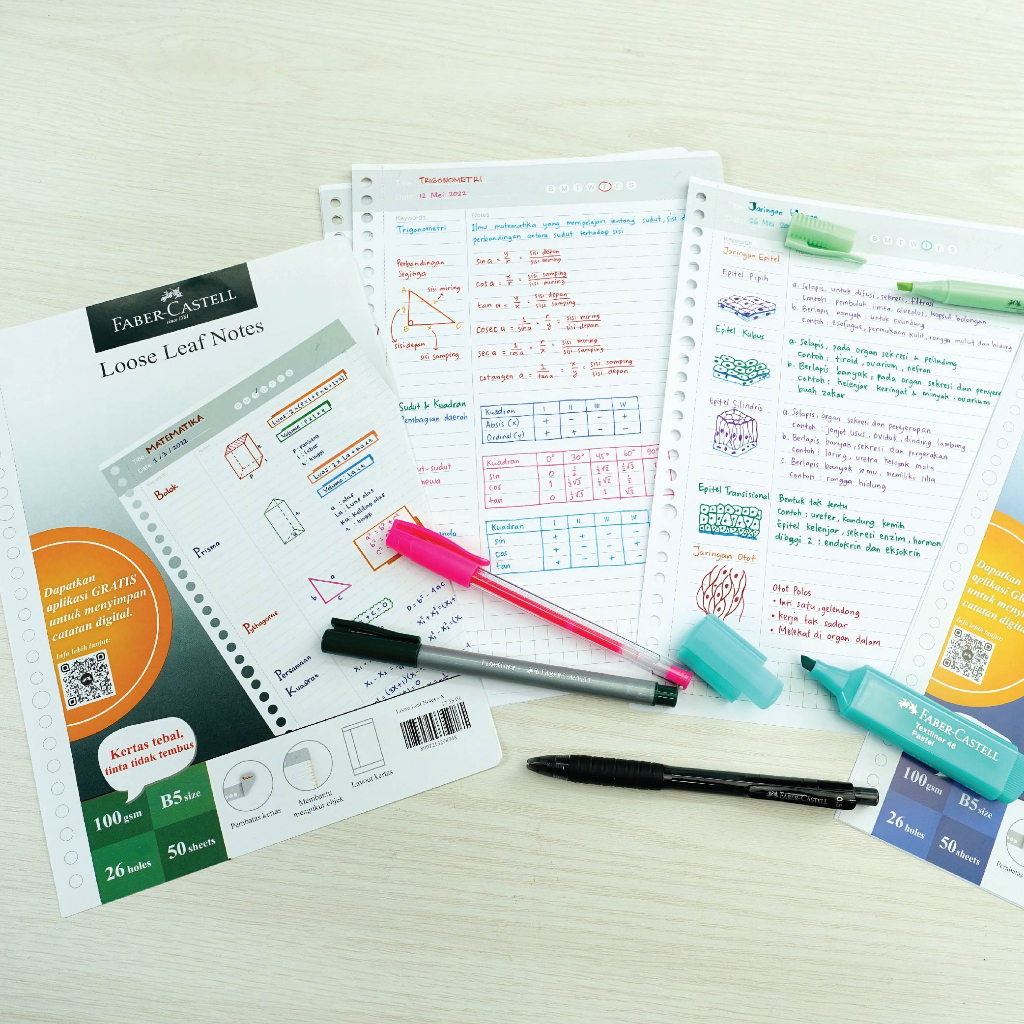 FABER-CASTELL
since 1761
Loose Leaf Notes
MATEMATIKA
1 / 3 / 2022
Balok
Luas : 2 x (P.l + P.t + l.t)
Volume : P x l x t
P : panjang
l : lebar
t : tinggi
Prisma
Luas : 2 x La + Ka x t
Volume : La x t
a : alas
La : Luas alas
Ka : Keliling alas
t : tinggi
Pythagoras
Persamaan
Kuadrat
Dapatkan
aplikasi GRATIS
untuk menyimpan
catatan digital.
Info lebih lanjut:
Kertas tebal,
tinta tidak tembus
100 gsm
B5 size
26 holes
50 sheets
Pembatas kertas
Membantu
mengukur objek
Layout kertas
TRIGONOMETRI
12 Mei 2022
S M T W T F S
Keywords
Notes
Trigonometri
Ilmu matematika yang mempelajari tentang sudut, sisi
perbandingan antara sudut terhadap sisi
Perbandingan
Segitiga
A
B
C
sisi miring
sisi depan
sisi samping
sin a = y/r = sisi depan/sisi miring
cos a = x/r = sisi samping/sisi miring
tan a = y/x = sisi depan/sisi samping
cosec a = 1/sin a = r/y = sisi miring/sisi depan
sec a = 1/cos a = r/x = sisi miring/sisi samping
cotangen a = 1/tan a = x/y = sisi samping/sisi depan
Sudut & Kuadran
Pembagian daerah
Kuadran I II III IV
Absis (x) + - - +
Ordinal (y) + + - -
Kuadran 0° 30° 45° 60° 90°
sin
cos
tan
Kuadran I II III IV
sin + + - -
cos + - - +
tan +
Jaringan
S M T W T F S
Jaringan Epitel
Epitel Pipih
a. Selapis, untuk difusi, sekresi, filtrasi
Contoh : pembuluh limfa, alveolus, kapsul bowman
b. Berlapis banyak untuk pelindung
Contoh : esofagus, permukaan kulit, rongga mulut dan hidung
Epitel Kubus
a. Selapis, pada organ sekresi & pelindung
Contoh : tiroid, ovarium, nefron
b. Berlapis banyak, pada organ sekresi dan
Contoh : kelenjar keringat & minyak, ovarium
buah zakar
Epitel Silindris
a. Selapis, organ sekresi dan penyerapan
contoh : jonjot usus, oviduk, dinding lambung
b. Berlapis banyak, sekresi dan pergerakan
contoh : laring, uretra, kelopak mata
c. Berlapis banyak semu, memiliki silia
Contoh : rongga hidung
Epitel Transisional
Bentuk tak tentu
Contoh : ureter, kandung kemih
Epitel kelenjar, sekresi enzim, hormon
dibagi 2 : endokrin dan eksokrin
Jaringan Otot
Otot Polos
• Inti satu, gelendong
• Kerja tak sadar
• Melekat di organ dalam
FABER-CASTELL
FABER-CASTELL
Textliner 46
Pastel
Dapatkan
aplikasi
untuk
catatan
Info lebih lanjut:
100 gsm
B5 size
26 holes
50 sheets